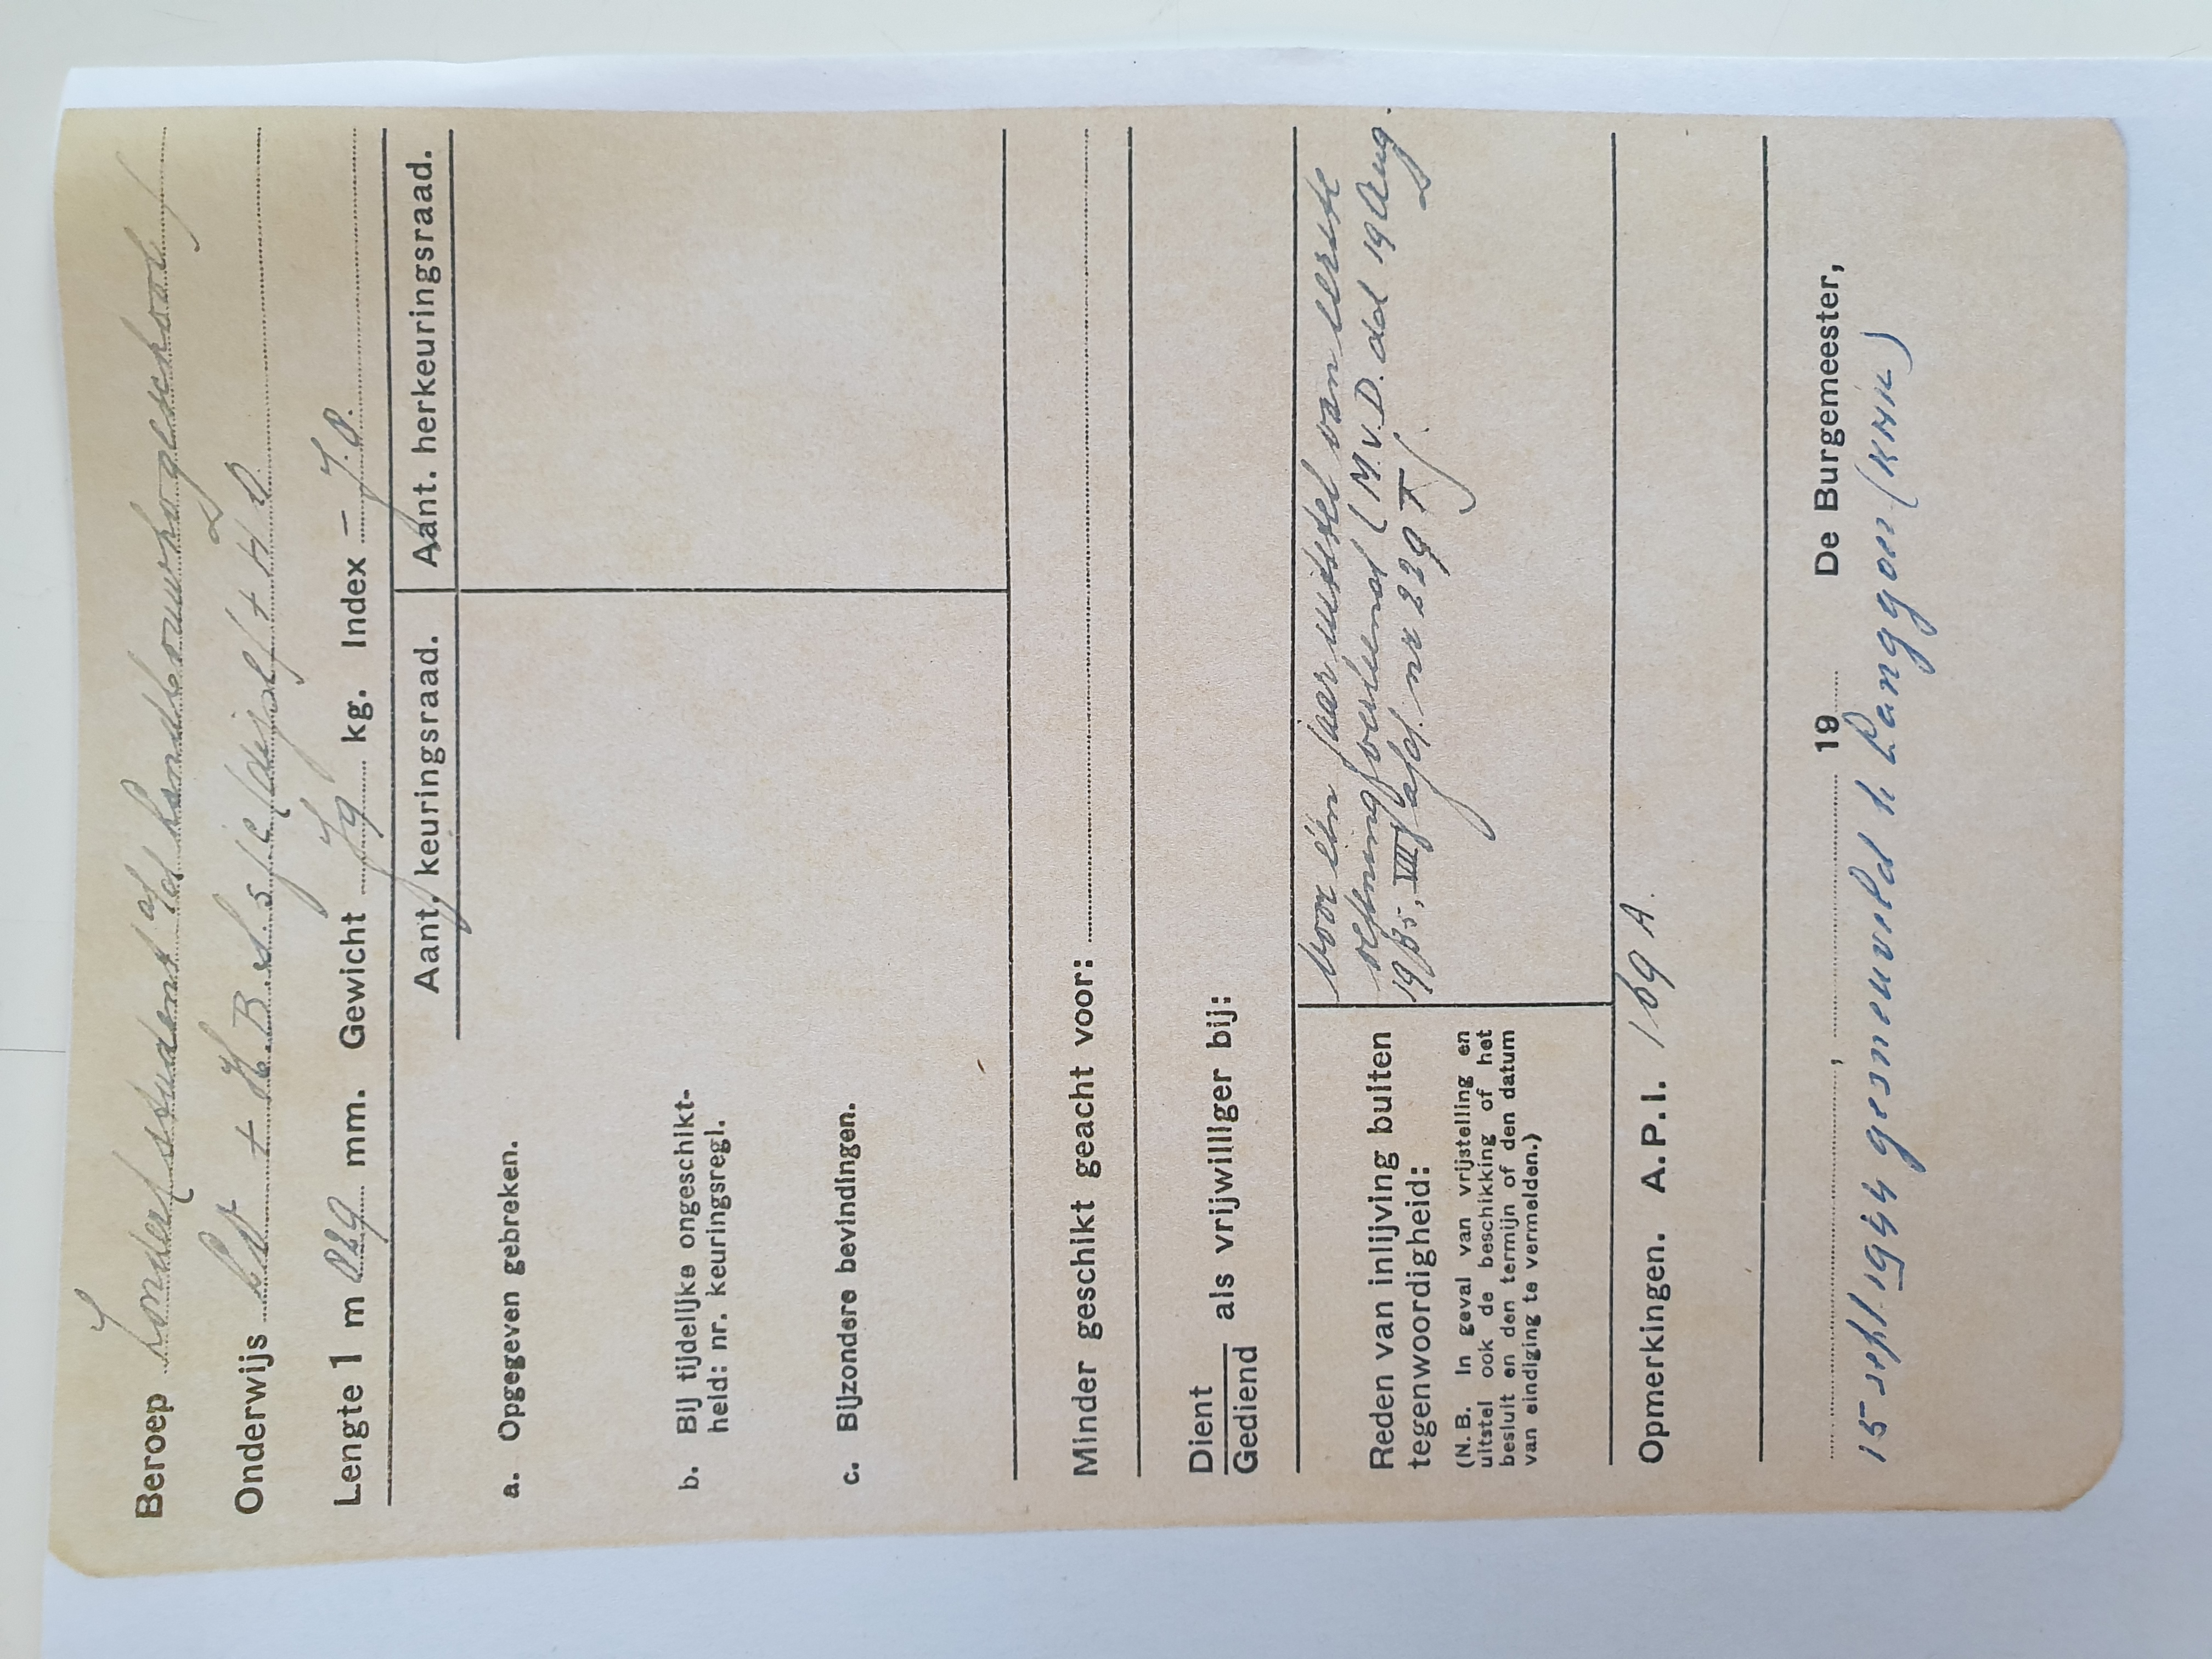 Beroep Londerf student a/d Landbouwhoogeschool
Onderwijs L.O. + H.B.S. 5 j. c. (dipl.) + H O.
Lengte 1 m 829 mm. Gewicht 79 kg. Index – 7.8.
Aant. keuringsraad. Aant. herkeuringsraad.
a. Opgegeven gebreken.
b. Bij tijdelijke ongeschikt-
heid: nr. keuringsregl.
c. Bijzondere bevindingen.
Minder geschikt geacht voor:
Dient
Gediend als vrijwilliger bij:
Reden van inlijving buiten
tegenwoordigheid:
(N.B. In geval van vrijstelling en
uitstel ook de beschikking of het
besluit en den termijn of den datum
van eindiging te vermelden.)
voor één jaar uitstel van eerste
oefening verleend (M.v.D. dd 19 Aug.
1935, VIIe afd. nr 229 T)
Opmerkingen. A.P.I. 169 A.
, 19 De Burgemeester,
15 sept. 1944 gesneuveld te Langgoer (KNIL)